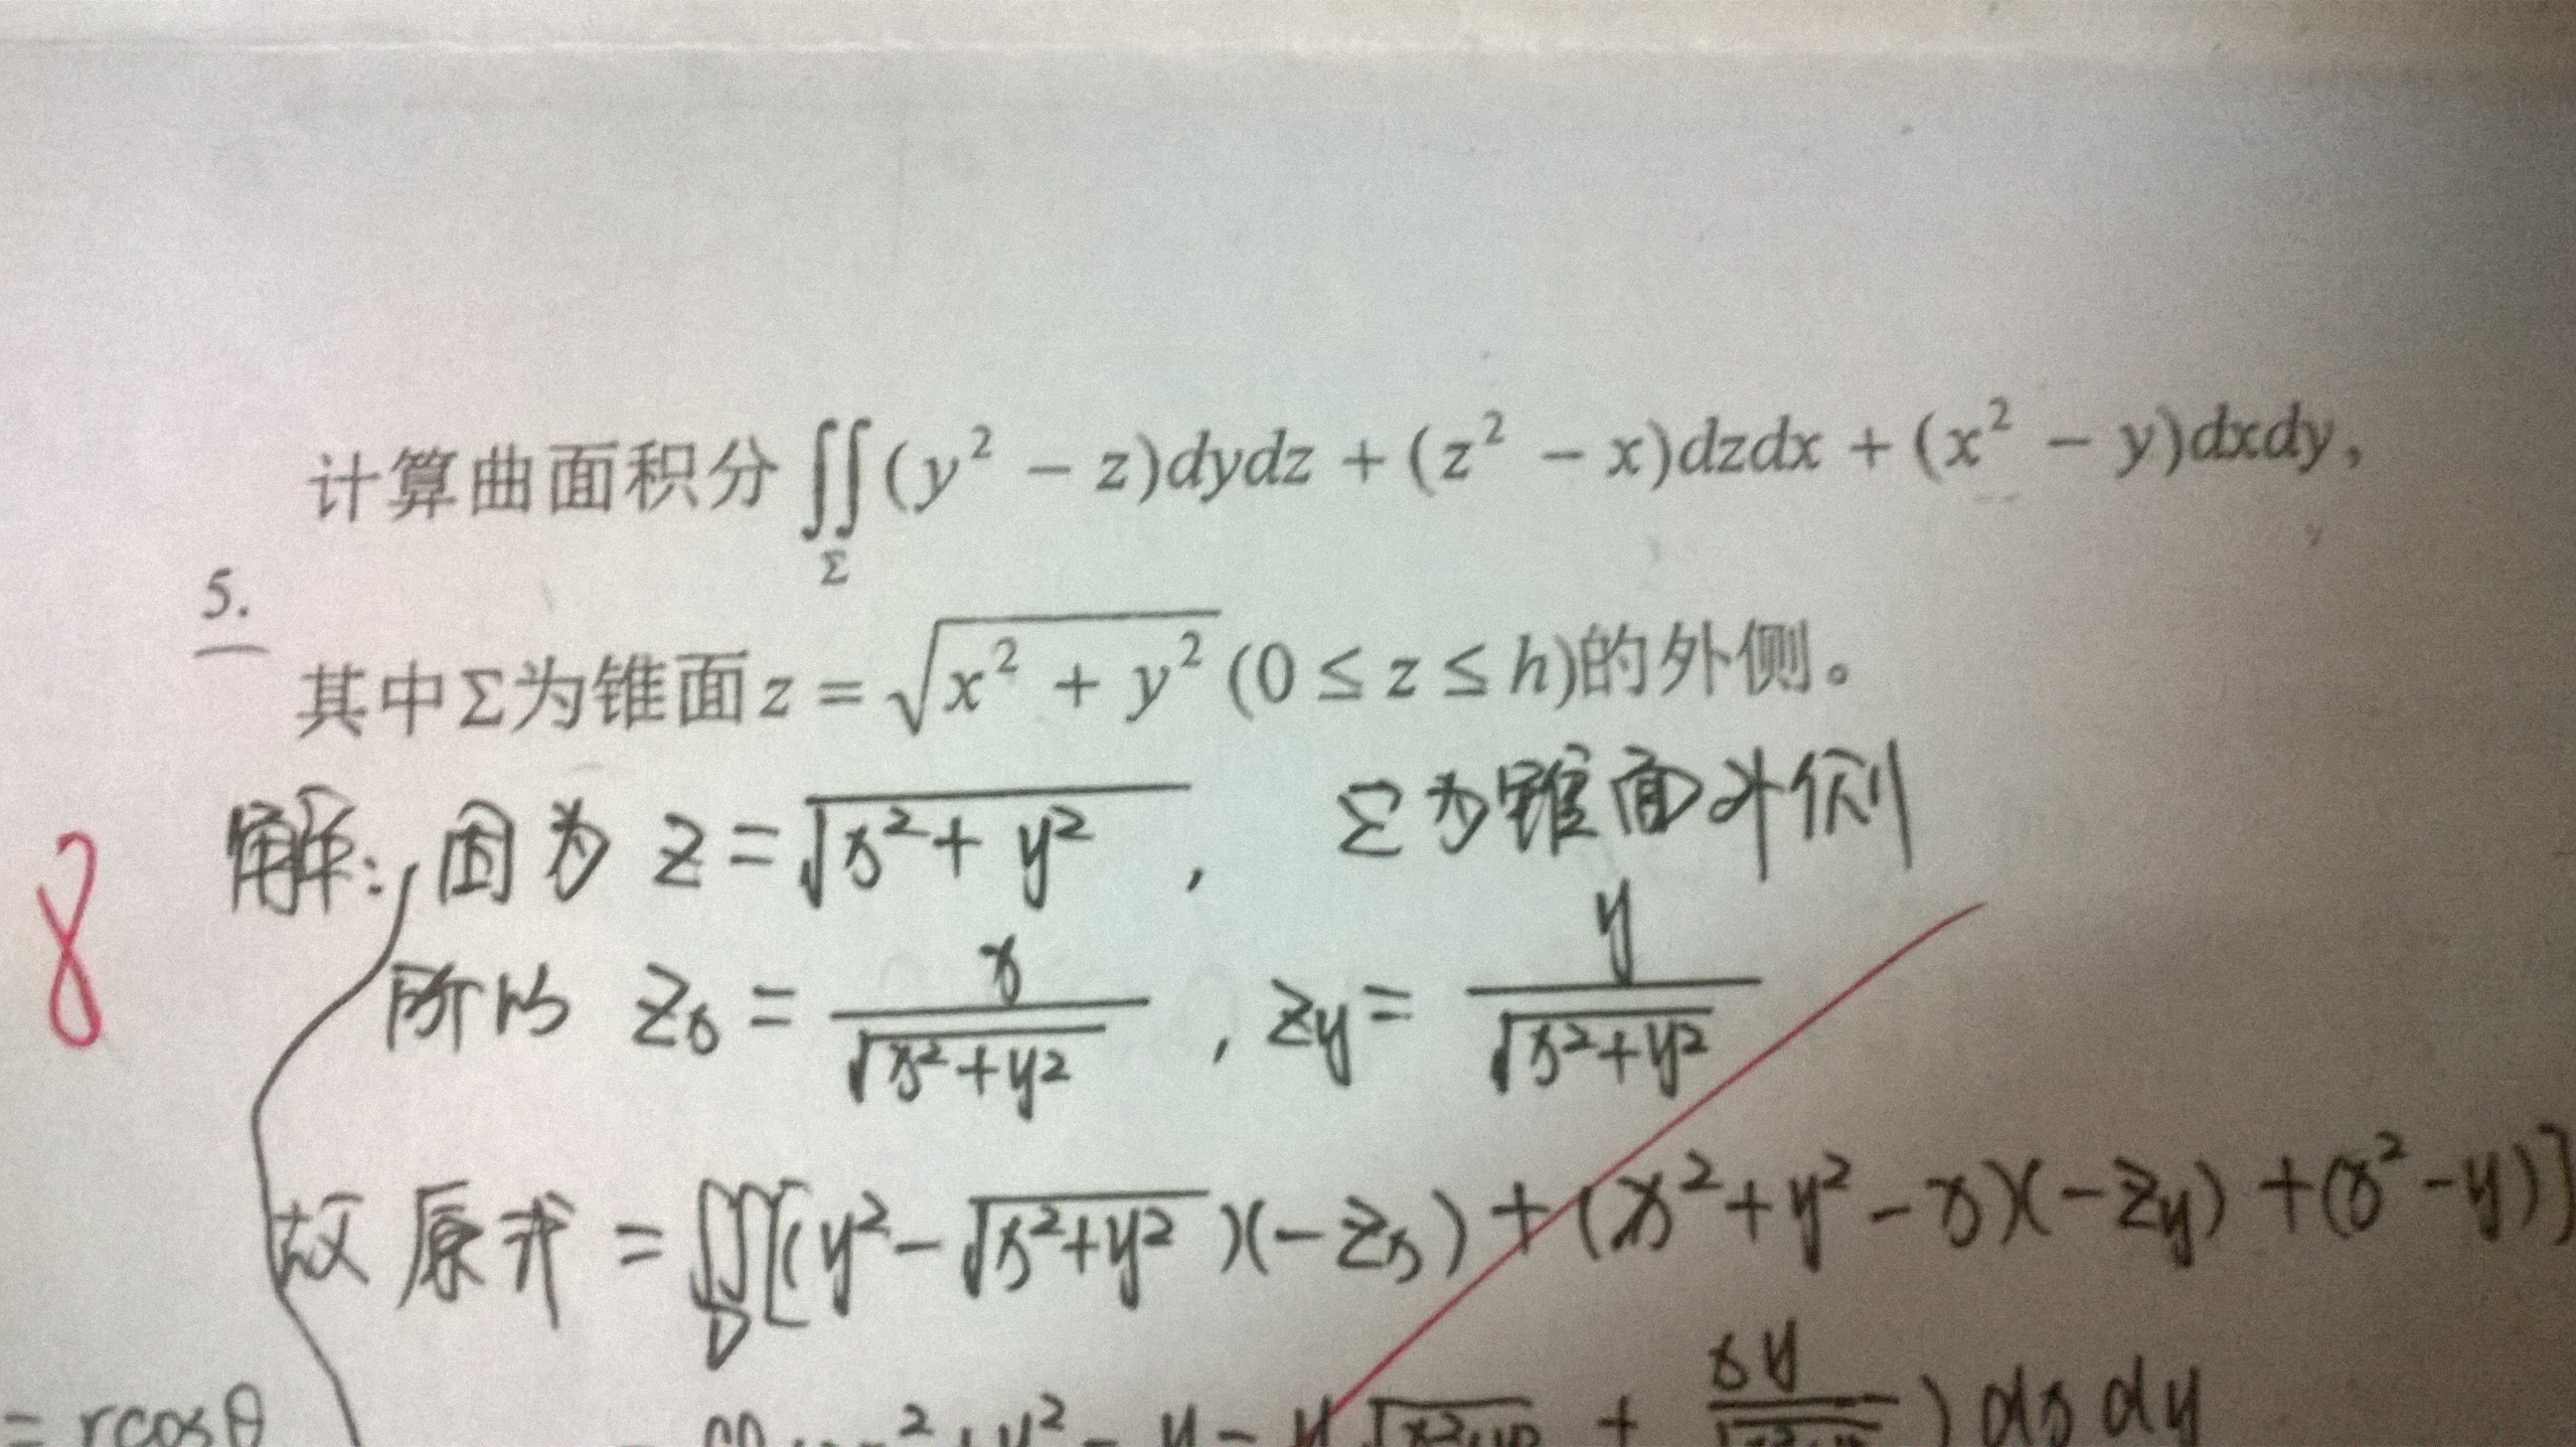 计算曲面积分∬(y² − z)dydz + (z² − x)dzdx + (x² − y)dxdy,
Σ
5.
其中Σ为锥面z = √(x² + y²) (0 ≤ z ≤ h)的外侧。
8
解: 因为 z = √(x² + y²) , Σ为锥面外侧
所以 zx = x/√(x²+y²) , zy = y/√(x²+y²)
故 原式 = ∬[(y² − √(x²+y²))(−zx) + (x²+y²−x)(−zy) + (x²−y)]
D
+ xy/ ) dx dy
= rcosθ